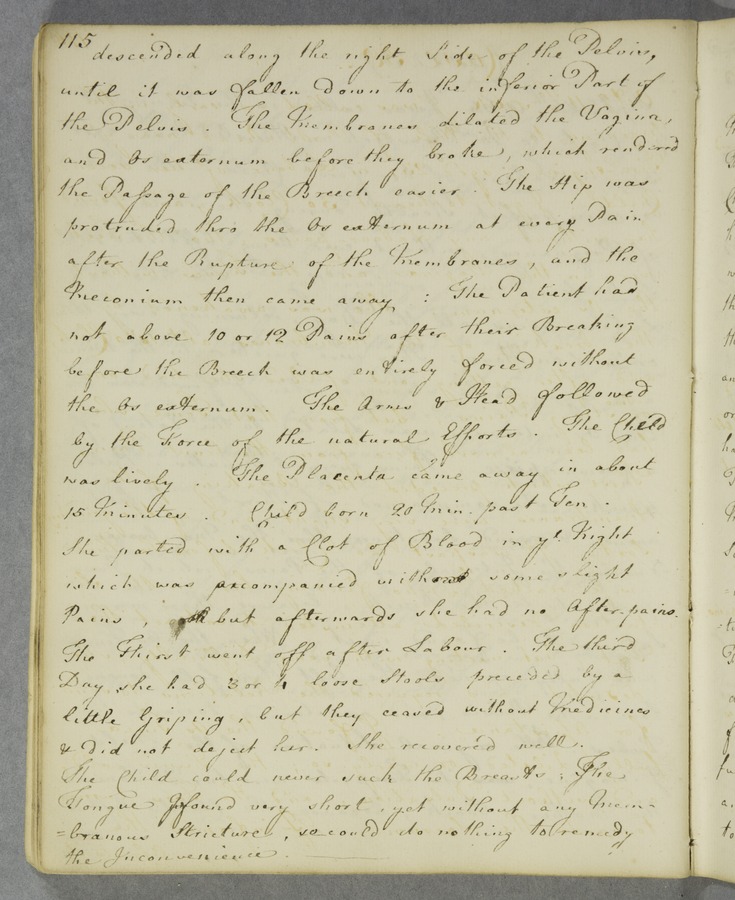 115
descended along the right Side of the Pelvis,
until it was fallen down to the inferior Part of
the Pelvis. The Membranes dilated the Vagina,
and Os externum before they broke, which rendered
the Passage of the Breech easier. The Hip was
protruded thro the Os externum at every Pain
after the Rupture of the Membranes, and the
Meconium then came away: The Patient had
not above 10 or 12 Pains after their Breaking
before the Breech was entirely forced without
the Os externum. The Arms & Head followed
by the Force of the natural Efforts. The Child
was lively. The Placenta came away in about
15 Minutes. Child born 20 Min. past Ten.
She parted with a Clot of Blood in yt. Night
which was accompanied with some slight
Pains, but afterwards she had no After-pains.
The Thirst went off after Labour. The third
Day she had 3 or 4 loose Stools preceded by a
little Griping, but they ceased without Medicines
& did not deject her. She recovered well.
The Child could never suck the Breasts: The
Tongue I found very short, yet without any Mem-
=branous Stricture, so could do nothing to remedy
the Inconvenience.